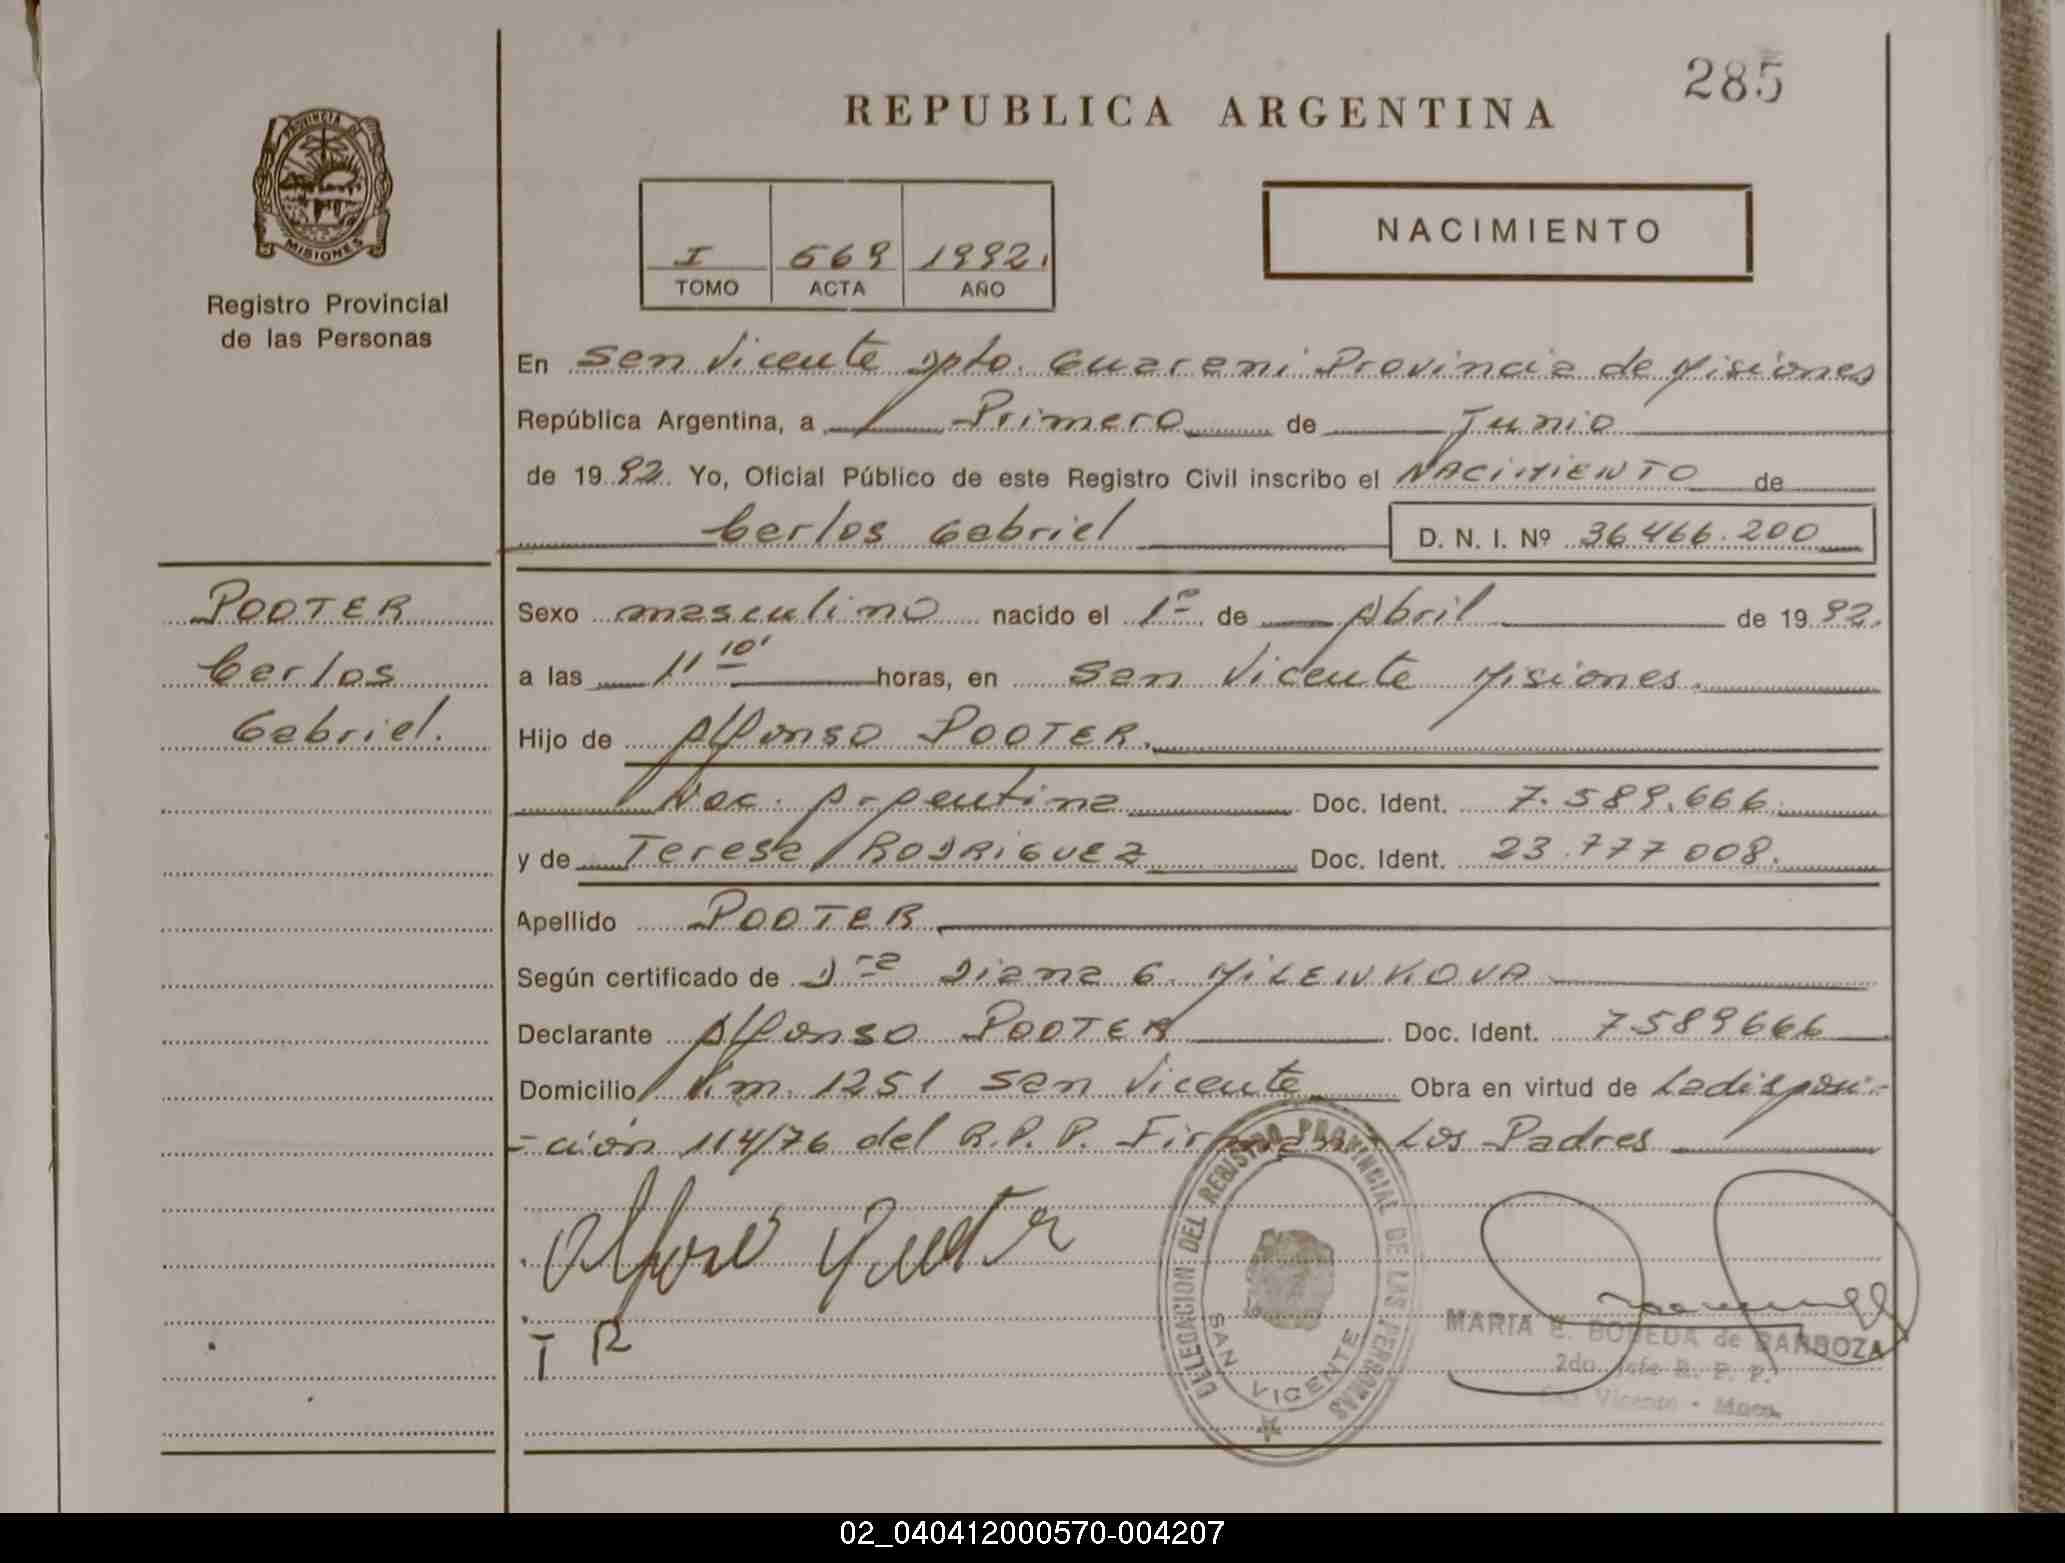 285
REPUBLICA ARGENTINA
PROVINCIA DE
MISIONES
Registro Provincial
de las Personas
NACIMIENTO
I 569 1992.
TOMO ACTA AÑO
En San Vicente Dpto. Guarani Provincia de Misiones
República Argentina, a Primero de Junio
de 1992. Yo, Oficial Público de este Registro Civil inscribo el NACIMIENTO de
Carlos Gabriel D. N. I. Nº 36.466.200
POOTER
Carlos
Gabriel.
Sexo masculino nacido el 1º de Abril de 1992.
a las 11 10' horas, en San Vicente Misiones.
Hijo de Alfonso POOTER.
Nac. Argentina Doc. Ident. 7.589.666
y de Teresa RODRIGUEZ Doc. Ident. 23.777 008.
Apellido POOTER
Según certificado de Dra Diana G. MILENKOVA
Declarante Alfonso POOTER Doc. Ident. 7589666
Domicilio Km. 1251 San Vicente Obra en virtud de La disposi-
-ción 114/76 del R.P.P. Firman Los Padres
T R
DELEGACION DEL REGISTRO PROVINCIAL DE LAS PERSONAS
SAN VICENTE
MARIA E. BOBEDA de BARBOZA
2do. Jefe R. P. P.
San Vicente - Mnes.
02_040412000570-004207